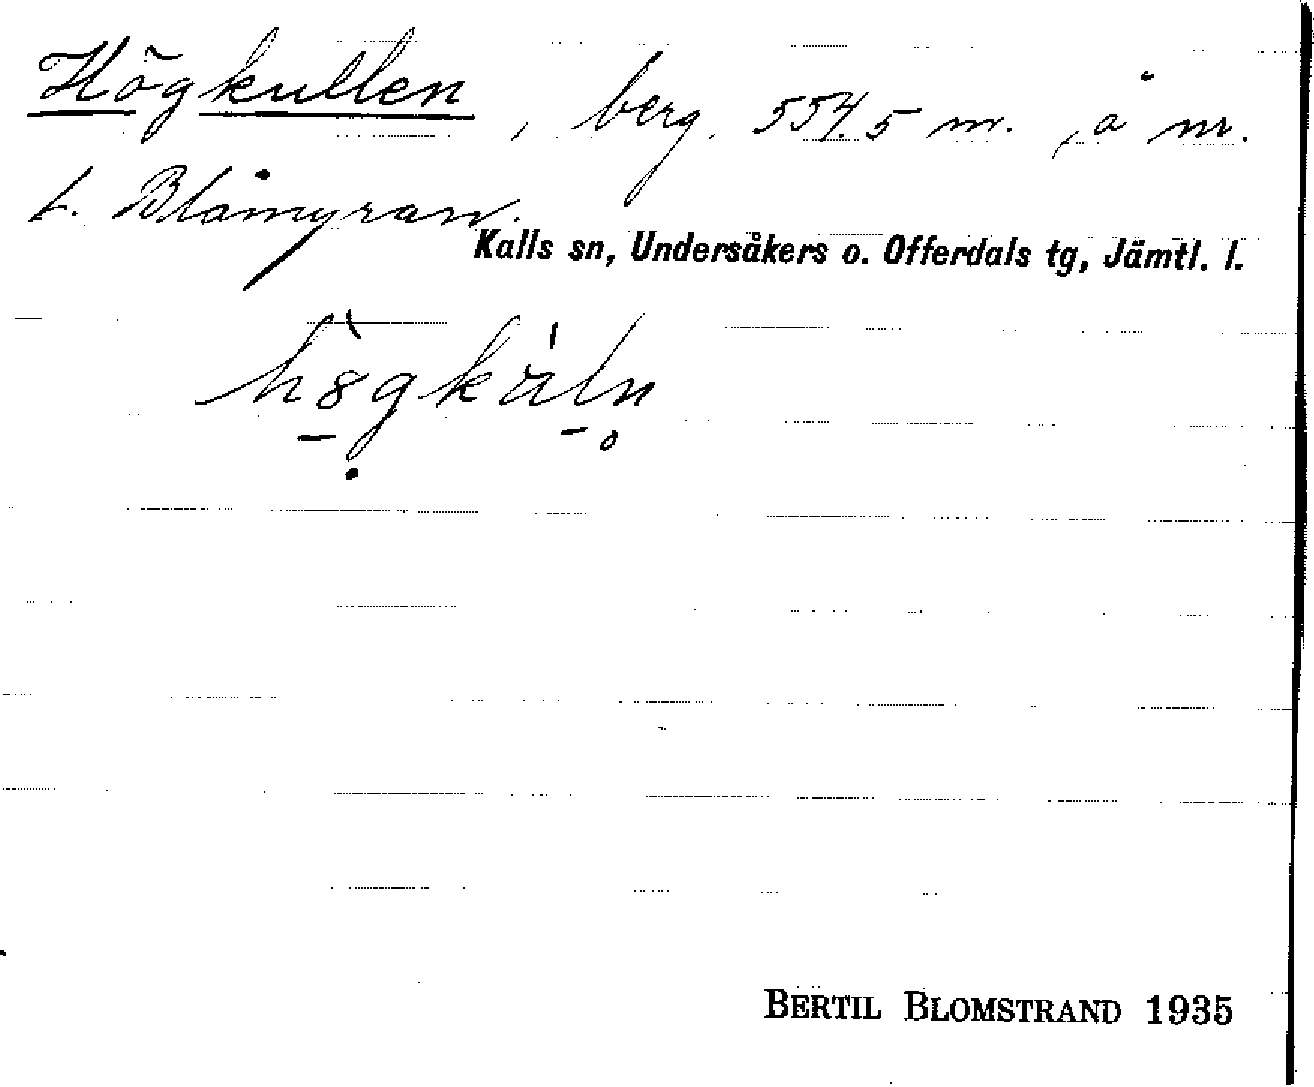 Högkullen, berg. 554.5 m. , å nr.
t. Blåmyran.
Kalls sn, Undersåkers o. Offerdals tg, Jämtl. l.
BERTIL BLOMSTRAND 1935